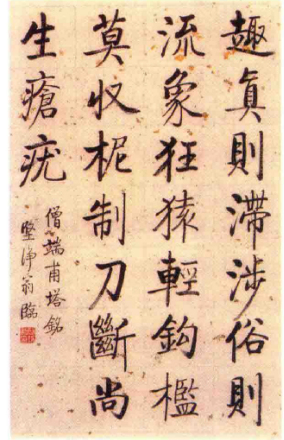 趣真則滯涉俗則
流象狂猿輕鈎檻
莫收柅制刀斷尚
生瘡疣
僧端甫塔銘
堅淨翁臨